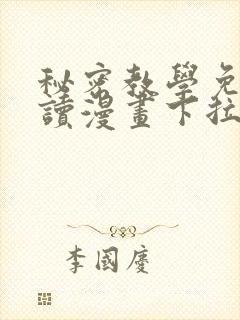 秘密教學免
讀漫畫下拉
李國慶